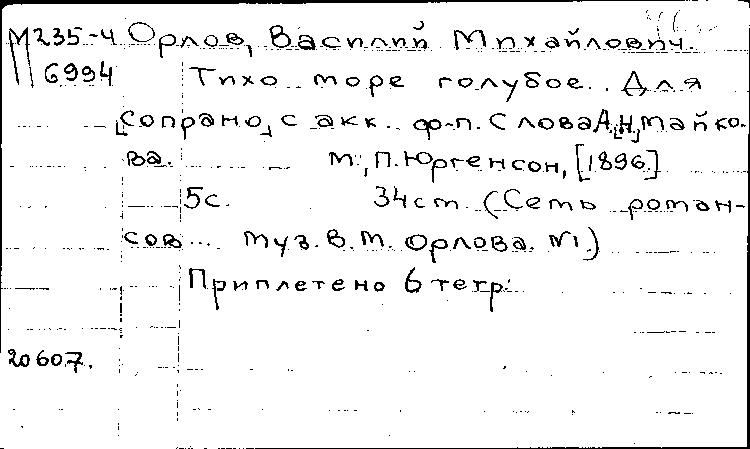 М 235-4 Орлов, Василий Михайлович.
6994 Тихо море голубое. Для
[сопрано] с акк. ф-п. Слова А.[Н.] Майко-
ва. М., П. Юргенсон, [1896.]
5с. 34см. (Семь роман-
сов... Муз. В. М. Орлова. №1.)
Приплетено 6 тетр.
20607.